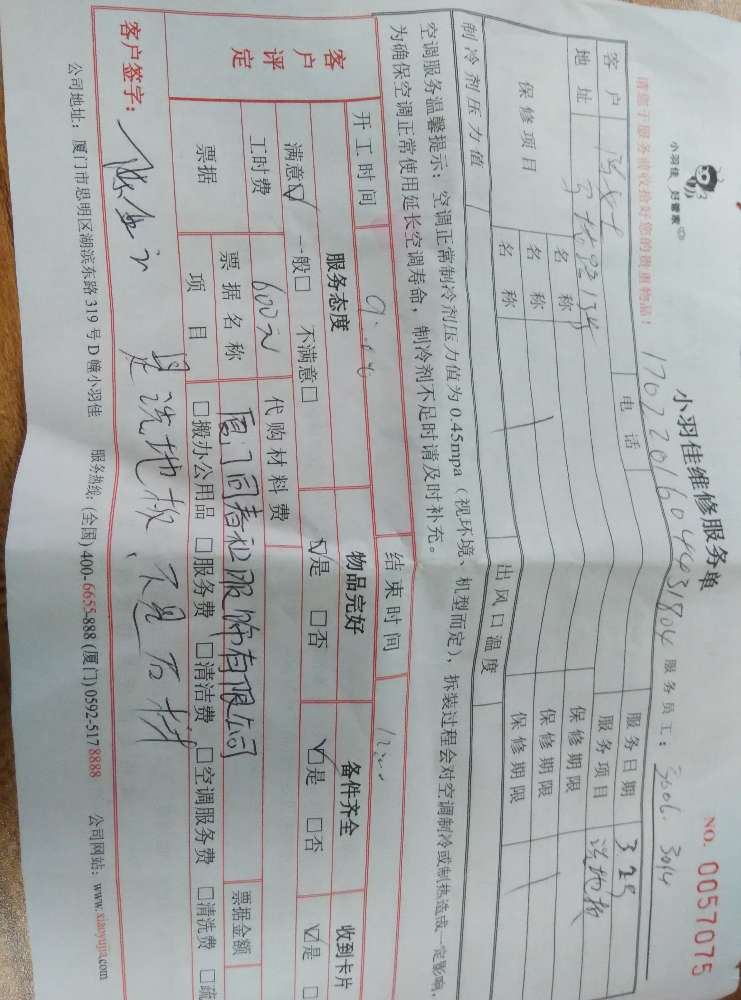 小羽佳 好管家
小羽佳维修服务单
NO. 0057075
请您于服务前收拾好您的贵重物品！
17022016044031804 服务员工：3006. 3014
客户 电话 服务日期 3.25
地址 服务项目 洗地板
保修项目 名称 保修期限
名称 保修期限
名称 保修期限
制冷剂压力值 出风口温度
空调服务温馨提示：空调正常制冷剂压力值为0.45mpa（视环境、机型而定），拆装过程会对空调制冷或制热造成一定影响，
为确保空调正常使用延长空调寿命，制冷剂不足时请及时补充。
开工时间 结束时间
客户评定 服务态度 物品完好 备件齐全 收到卡片
满意☑ 一般□ 不满意□ ☑是 □否 ☑是 □否 ☑是 □
工时费 600元 代购材料费
票据 票据名称 厦门同春服饰有限公司 票据金额
项目 □搬办公用品 □服务费 □清洁费 □空调服务费 □清洗费 □疏
客户签字： 是洗地板、不是石材
公司地址：厦门市思明区湖滨东路319号D幢小羽佳 服务热线：(全国)400-6655-888 (厦门)0592-5178888 公司网站：www.xiaoyujia.com